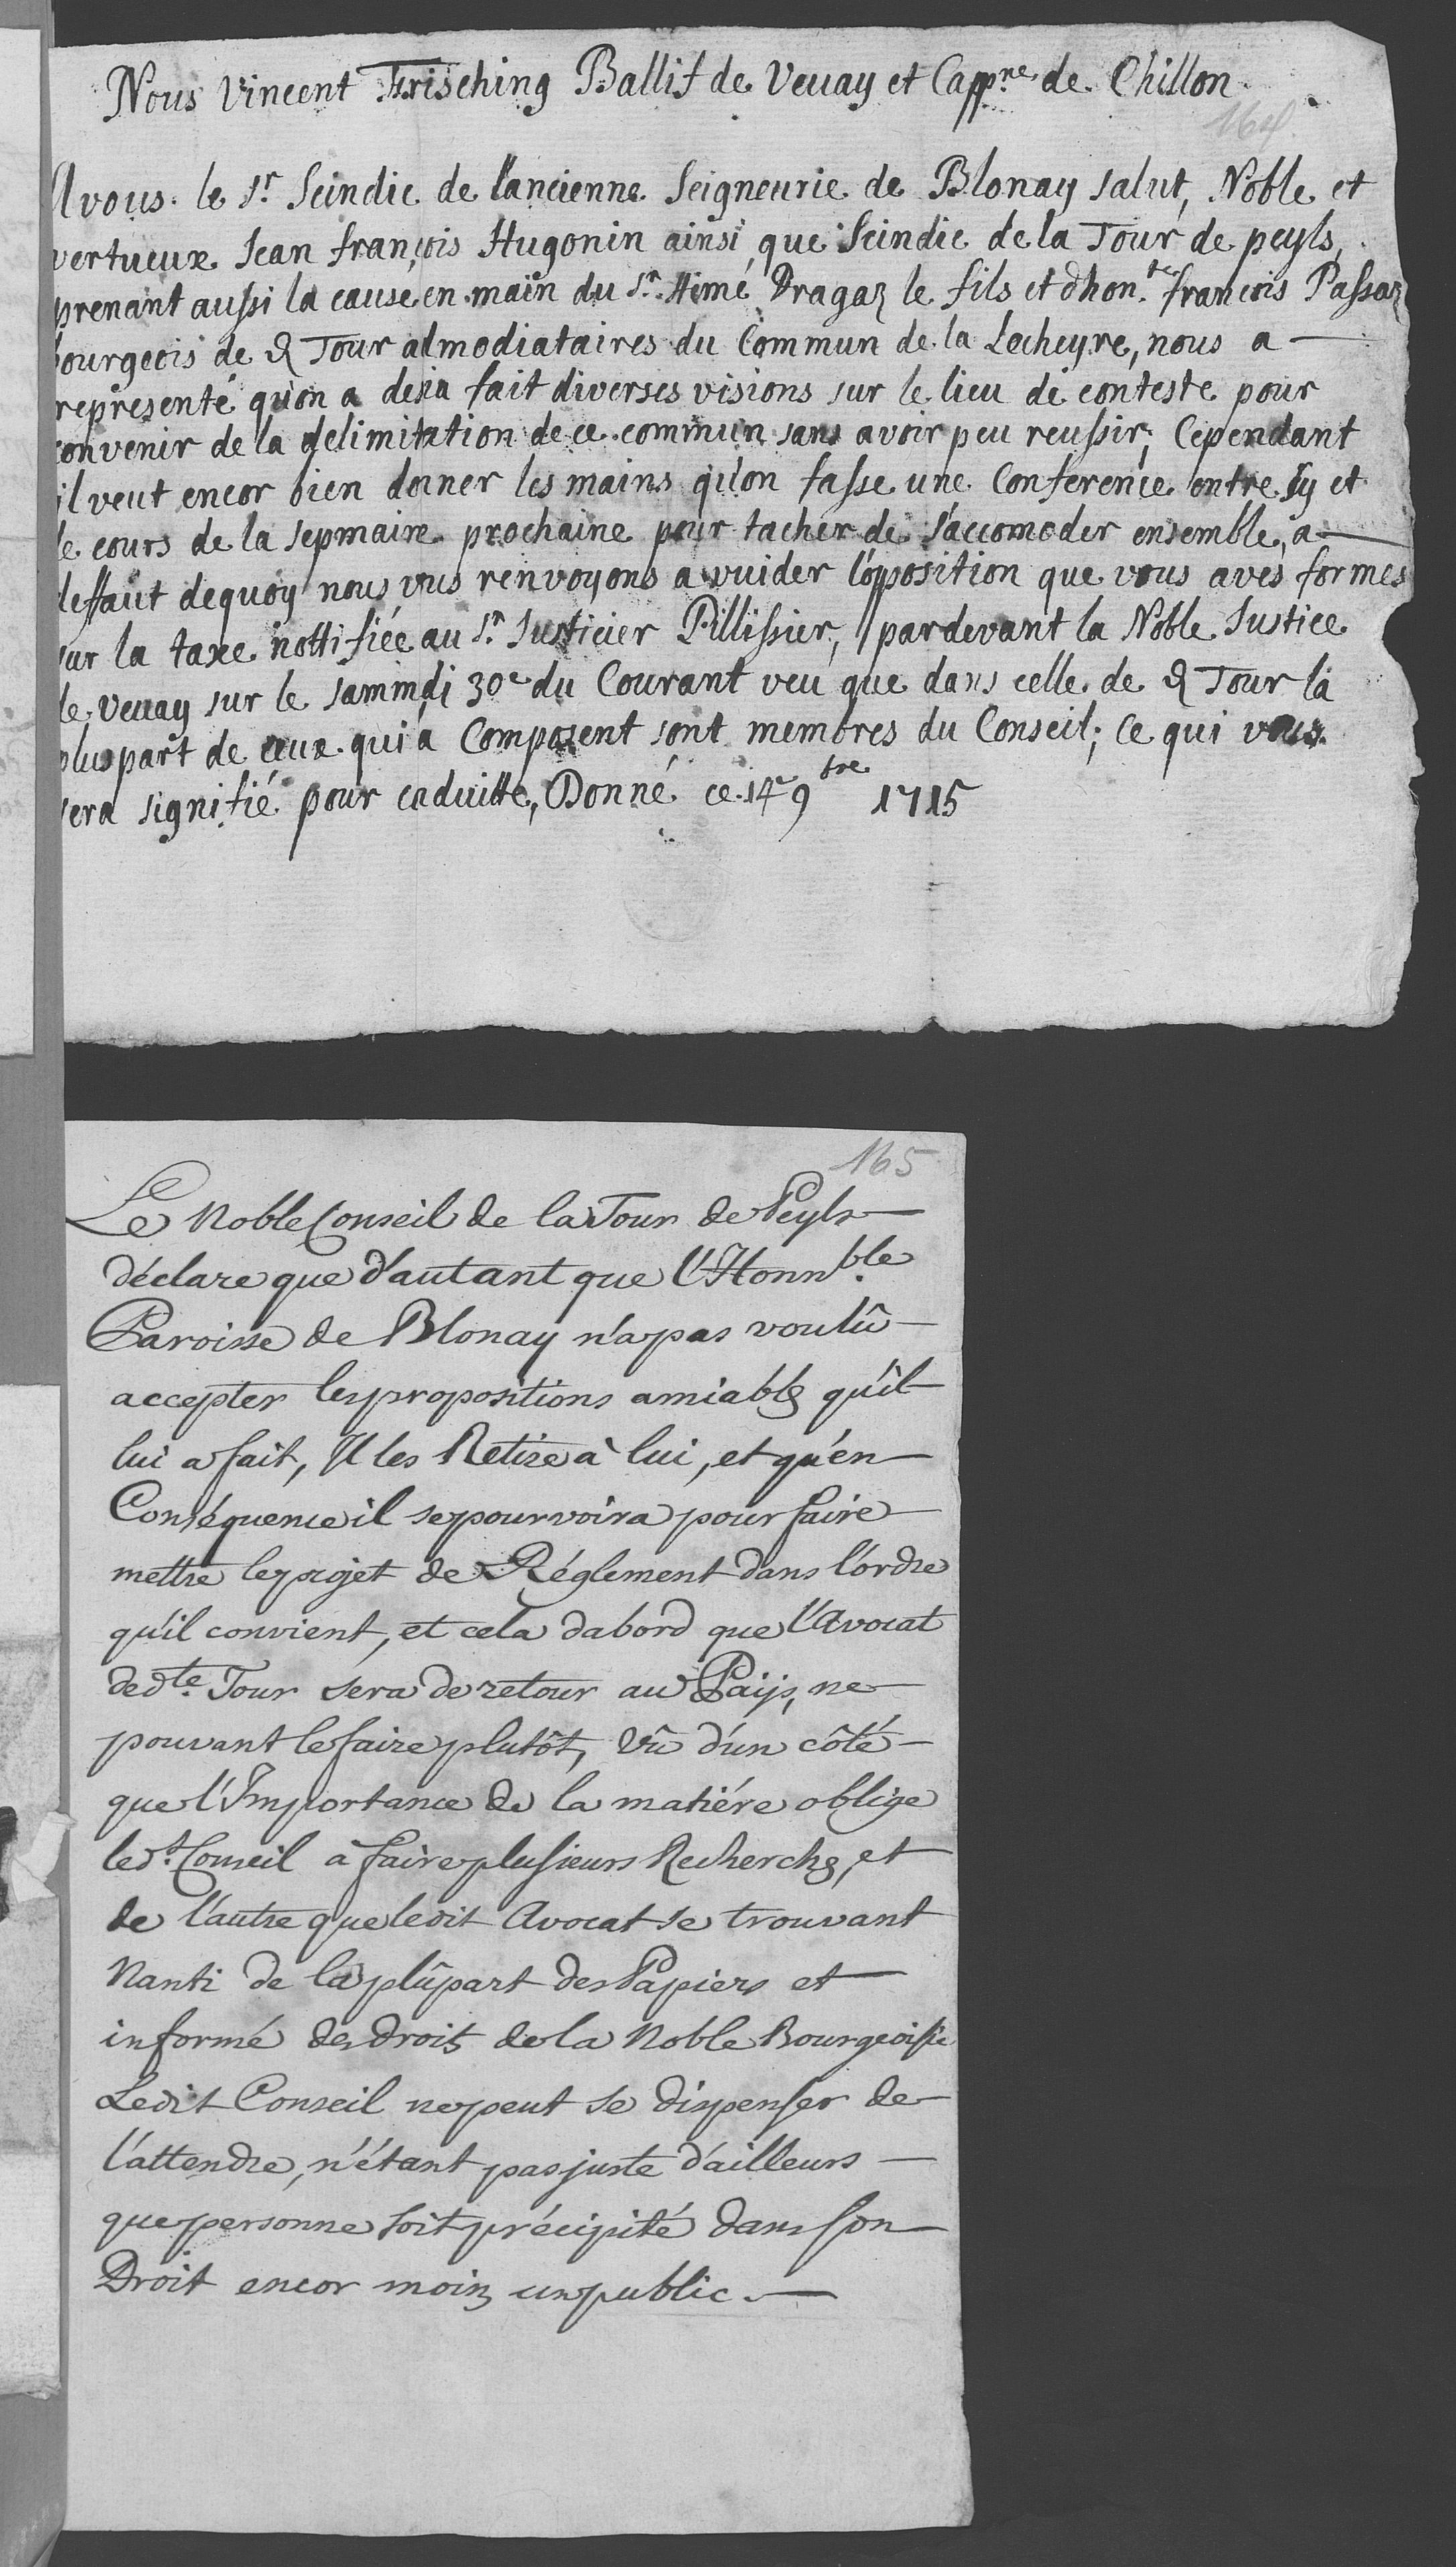 Nous Vincent Frisching Ballif de Vevay et Capp.ne de Chillon
164
A vous le Sr. Scindic de l'ancienne Seigneurie de Blonay salut, Noble et
vertueux Jean françois Hugonin ainsi que Scindic de la Tour de peyls,
prenant aussi la cause en main du Sr. Aimé Dragaz le fils et dhon.te françois Passaz
bourgeois de d. Tour almodiataires du Commun de la Lecheyre, nous a —
representé qu'on a desia fait diverses visions sur le lieu de conteste pour
convenir de la delimitation de ce commun sans avoir peu reussir; Cependant
il veut encor bien donner les mains qu'on fasse une Conference entre sy et
le cours de la sepmaine prochaine pour tacher de s'accomoder ensemble, a —
deffaut dequoy nous vous renvoyons a vuider l'opposition que vous aves formes
sur la taxe nottifiée au Sr. Justicier Pillissier, pardevant la Noble Justice
de Vevay sur le sammdi 30e du Courant veu que dans celle de d. Tour la
pluspart de ceux qui a Composent sont membres du Conseil; Ce qui vous
sera signifié pour conduitte, Donné ce 14e 9bre 1715
165
Le Noble Conseil de la Tour de Peyls —
déclare que d'autant que l'Honn.ble
Paroisse de Blonay n'a pas voulû —
accepter les propositions amiables qu'il
lui a fait, Il les Retire à lui, et qu'en —
Conséquence il se pourvoira pour faire —
mettre le projet de Réglement dans l'ordre
qu'il convient, et cela dabord que l'Avocat
de d.te Tour sera de retour au Païs, ne —
pouvant le faire plutôt, Vû d'un côté —
que l'Importance de la matiére oblige
led.t Conseil à faire plusieurs Recherches, et
de l'autre que ledit Avocat se trouvant
Nanti de la plûpart des Papiers et —
informé des droits de la Noble Bourgeoisie
Ledit Conseil ne peut se dispenser de —
l'attendre, n'étant pas juste d'ailleurs —
que personne soit précipité dans son —
Droit encor moins un public. —